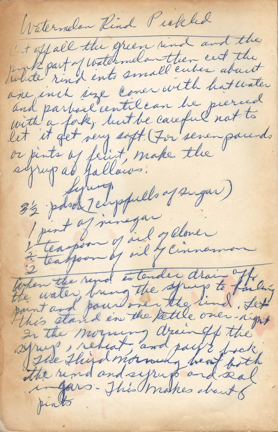 Watermelon Rind Pickled
Cut off all the green rind and the
pink part of watermelon then cut the
white rind into small cubes about
one inch size cover with hot water
and parboil until can be pierced
with a fork, but be careful not to
let it get very soft. (For seven pounds
or pints of fruit, make the
syrup as follows.
Syrup
3½ (7 cupfulls of sugar)
1 pint of vinegar
½ teaspoon of oil of clover
½ teaspoon of oil of cinnamon
When the rind is tender drain off
the water, bring the syrup to boiling
point and pour over the rind. Let
this stand in the kettle over-night
In the morning drain off the
syrup, reheat, and pour back.
(The Third morning heat both
the rind and syrup and seal
in jars. This makes about 8
pints